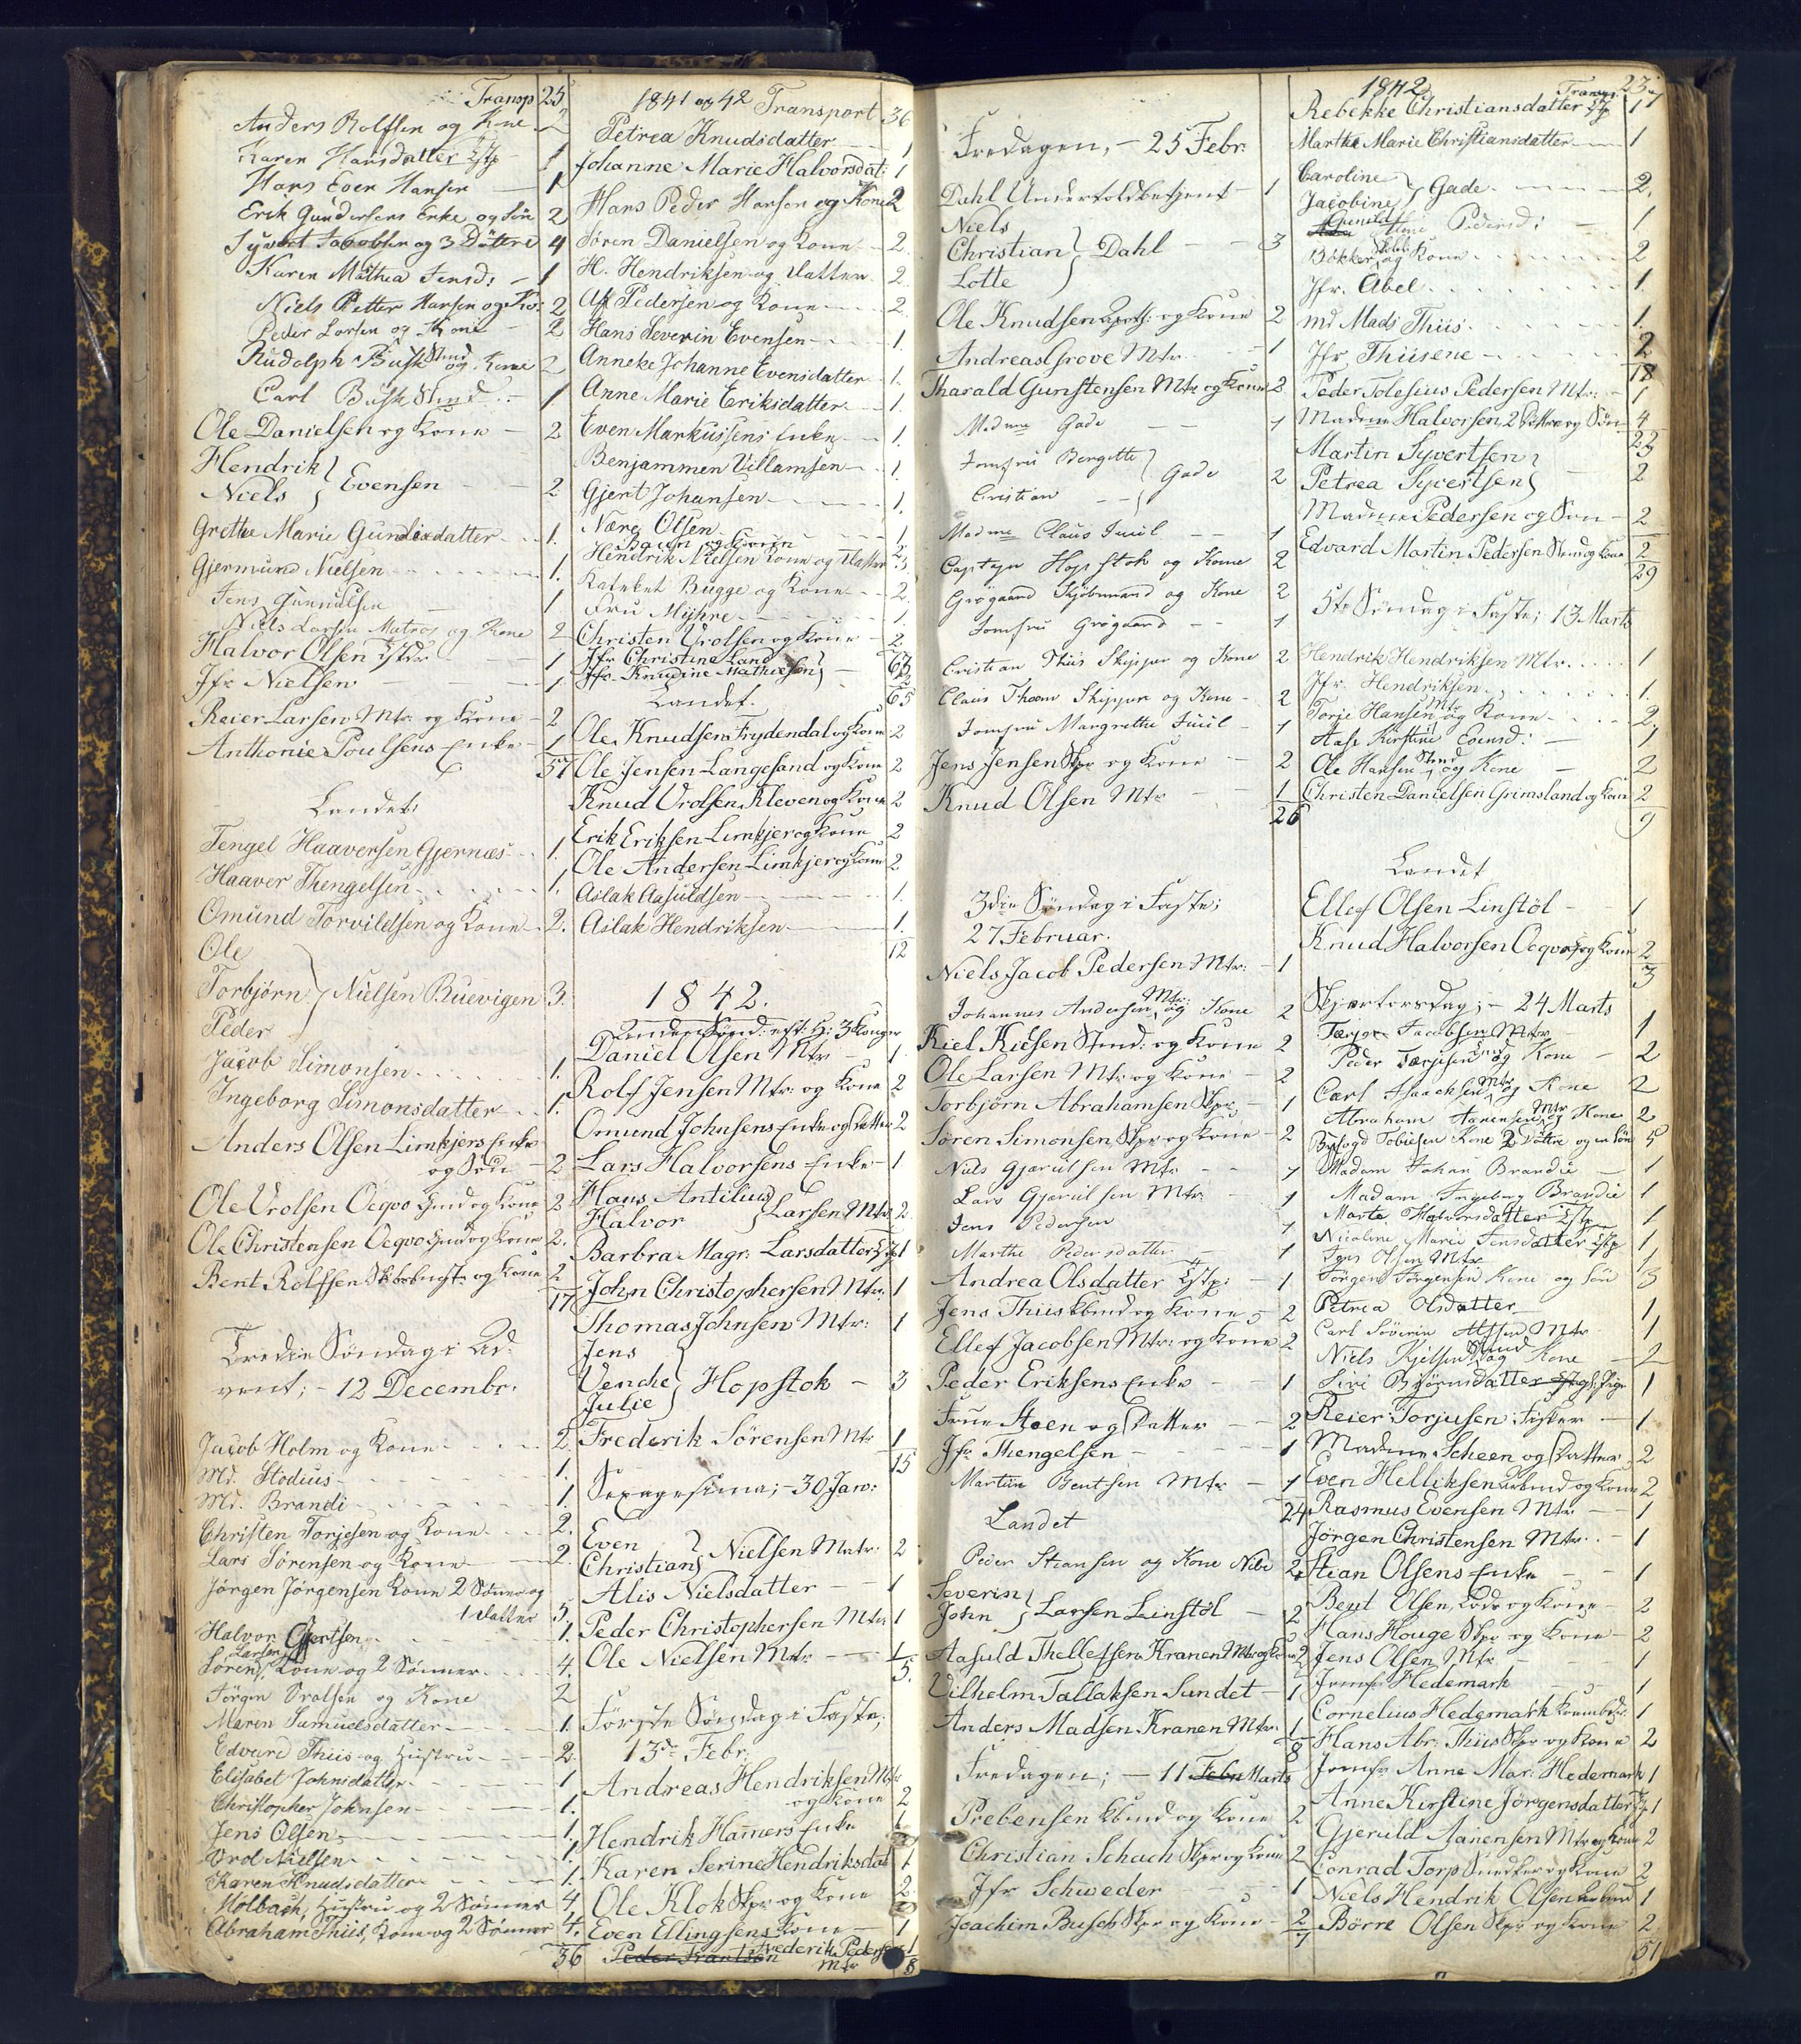 Transp 25
Anders Rolfsen og Kone 2
Karen Hansdatter Tjp 1
Hans Even Hansen 1
Erik Gundersens Enke og Søn 2
Syvert Jacobsen og 3 Døttre 4
Karen Mathea Jensd: 1
Niels Petter Hansen og Ko: 2
Peder Larsen og Kone 2
Rudolph Busk Stmd og Kone 2
Carl Busk Stmd 1
Ole Danielsen og Kone 2
Hendrik
Niels } Evensen 2
Grethe Marie Gundersdatter 1.
Gjermund Nielsen 1.
Jens Gunnulsen 1
Niels Larsen Matros og Kone 2
Halvor Olsen 1
Jfr Nielsen 1.
Reier Larsen Mtr. og Kone 2
Anthonie Poulsens Enke 1
57
Landet:
Tengel Haaversen Gjernæs 1.
Haaver Thengelsen 1.
Omund Torvildsen og Kone 2.
Ole
Torbjørn } Nielsen Buevigen 3.
Peder
Jacob Simonsen 1.
Ingeborg Simonsdatter 1.
Anders Olsen Limkjers Enke
og Søn 2
Ole Vrolsen Ocqvo Gmd og Kone 2
Ole Christensen Ocqvo Gmd og Kone 2.
Bent Rolfsen og Kone 2
17
Tredie Søndag i Ad:
vent; - 12 Decembr.
Jacob Holm og Kone 2
Md. Stodius 1.
Md. Brandi 1.
Christen Torjesen og Kone 2.
Lars Sørensen og Kone 2
Jørgen Jørgensen Kone 2 Sønner og
1 Datter 5.
Halvor Gjertsen 1.
Søren Larsen, Kone og 2 Sønner 4.
Jørgen Vrolsen og Kone 2
Maren Samuelsdatter 1.
Edvard Thiis og Hustru 2.
Elisabet Johnsdatter 1
Christopher Johnsen 1.
Jens Olsen 1.
Vrol Nielsen 1
Karen Knudsdatter 1.
Molbach, Hustru og 2 Sønner 4.
Abraham Thiis, Kone og 2 Sønner 4.
36
1841 og 42 Transport 36
Petrea Knudsdatter 1
Johanne Marie Halvorsdat: 1
Hans Peder Hansen og Kone 2
Søren Danielsen og Kone 2.
H. Hendriksen og Datter 2
Alf Pedersen og Kone 2.
Hans Severin Evensen 1.
Anneke Johanne Evensdatter 1.
Anne Marie Eriksdatter 1.
Even Markussens Enke 1.
Benjammen Villamsen 1.
Gjert Johansen 1.
Nære Olsen 1
Hendrik Nielsen Kone og Datter 3
Kateket Bugge og Kone 2.
Fru Myhre 1.
Christen Vrolsen og Kone 2
Jfr Christine Land
Jfr. Knudine Mathiesen } 63
2
Landet. 65
Ole Knudsen Frydendal og Kone 2
Ole Jensen Langesand og Kone 2
Knud Vrolsen Kleven og Kone 2
Erik Eriksen Limkjer og Kone 2
Ole Andersen Limkjer og Kone 2
Aslak Aasuldsen 1.
Aslak Hendriksen 1.
12
1842.
Anden Sønd: eft: H: 3 Konger
Daniel Olsen Mtr 1.
Rolf Jensen Mtr: og Kone 2
Omund Johnsens Enke og Datter 2
Lars Halvorsens Enke 1
Hans Antilius
Halvor } Larsen Mtr. 2
Barbra Magr: Larsdatter Tjp 1
John Christophersen Mtr. 1
Thomas Johnsen Mtr: 1
Jens
Venche } Hopstok 3
Julie
Frederik Sørensen Mtr 1
15
Sexagesima; - 30 Jan:
Even
Christian } Nielsen Mtr: 2
Alis Nielsdatter 1
Peder Christophersen Mtr. 1
Ole Nielsen Mtr 1
5.
Første Søndag i Faste;
13de Febr.
Andreas Hendriksen Mtr
og Kone 2
Hendrik Hamers Enke 1
Karen Serine Hendriksdat 1
Ole Klok Skpr og Kone 2
Even Ellingsens Kone 1
Peder Frantsen Frederik Pedersen 1
Mtr 8
Fredagen, - 25 Febr:
Dahl Undertoldbetjent 1
Niels
Christian } Dahl 3
Lotte
Ole Knudsen og Kone 2
Andreas Grove Mtr. 1
Tharald Gunstensen Mtr og Kone 2
Madme Gade 1
Jomfru Bergitte
Cristian } Gade 2
Madme Claus Juul 1
Captejn Hopstok og Kone 2
Grøgaard Kjøbmand og Kone 2
Jomfru Grøgaard 1
Cristian Thiis Skipper og Kone 2
Claus Thom Skipper og Kone 2
Jomfru Margrethe Juul 1
Jens Jensen Skpr og Kone 2
Knud Olsen Mtr 1
26
3die Søndag i Faste;
27 Februar.
Niels Jacob Pedersen Mtr: 1
Johannes Andersen Mtr: og Kone 2
Kiel Kielsen Stmd: og Kone 2
Ole Larsen Mtr og Kone 2
Torbjørn Abrahamsen Skpr 1
Søren Simonsen Skpr og Kone 2
Niels Gjerulsen Mtr 1
Lars Gjerulsen Mtr. 1
Jens Pedersen 1
Marthe Pedersdatter 1
Andrea Olsdatter Tjp: 1
Jens Thiis Kbmd og Kone 2
Ellef Jacobsen Mtr: og Kone 2
Peder Eriksens Enke 1
Frue Stoen og Datter 2
Jfr Thengelsen 1
Martin Bentsen Mtr 1
24
Landet
Peder Stiansen og Kone Nibe 2
Severin
John } Larsen Linstøl 2
Aasuld Thellefsen Kranen Mtr og Kone 2
Vilhelm Tallaksen Sundet 1
Anders Madsen Kranen Mtr: 1
8
Fredagen; - 11 Febr Marts
Prebensen Kbmd og Kone 2
Christian Schach Skpr og Kone 2
Jfr Schweder 1
Joachim Busch Skpr og Kone 2
7
1842 Transp 23
Rebekke Christiansdatter Tjp 1
Marthe Marie Christiansdatter 1
Caroline
Jacobine } Gade 2.
Gunild Pedersd: 1
Bøkker og Kone 2
Jfr. Abel 1.
Md Mads Thiis 1.
Jfr Thiisene 2
18
Peder Tolefius Pedersen Mtr: 1
Madme Halvorsen, 2 Døttre og Søn 4
23
Martin Syvertsen
Petrea Syvertsen } 2
Madme Pedersen og Søn 2
Edvard Martin Pedersen Stmd og Kone 2
29
5te Søndag i Faste; 13 Marts
Hendrik Hendriksen Mtr. 1
Jfr. Hendriksen 1.
Torje Hansen Mtr og Kone 2.
Aase Kirstine Evensd: 1
Ole Hansen Stmd og Kone 2
Christen Danielsen Grimsland og Kone 2
9
Landet
Ellef Olsen Linstøl 1
Knud Halvorsen Ocqvo og Kone 2
3
Skjærtorsdag; - 24 Marts
Tærje Jacobsen Mtr 1
Peder Tærjesen og Kone 2
Carl Isaachsen Mtr og Kone 2
Abraham Aanensen Mtr og Kone 2
Byfogd Tobiesen Kone 2 Døttre og en Søn 5
Madam Johan Brandie 1
Madam Ingeborg Brandie 1
Marte Halvorsdatter Tjp 1
Nicoline Marie Jensdatter Tjp 1
Jens Olsen Mtr 1
Jørgen Jørgensen Kone og Søn 3
Petrea Olsdatter 1
Carl Søverin Alfsen Mtr 1
Niels Kjelsen Stmd og Kone 2
Siri Bjørnsdatter Pige 1
Reier Torjusen Fisker 1
Madme Scheen og Datter 2
Even Helliksen og Kone 2
Rasmus Evensen Mtr 1
Jørgen Christensen Mtr. 1
Stian Olsens Enke 1
Bent Olsen, Lods og Kone 2
Hans Houge Skpr og Kone 2
Jens Olsen Mtr 1
Jomfr Hedemark 1
Cornelius Hedemark 1
Hans Abr. Thiis Skpr og Kone 2
Jomfr Anne Mar: Hedemark 1
Anne Kirstine Jørgensdatter Tjp 1
Gjeruld Aanensen Mtr og Kone 2
Conrad Torp Snedker og Kone 2
Niels Hendrik Olsen 1
Børre Olsen Skpr og Kone 2
51